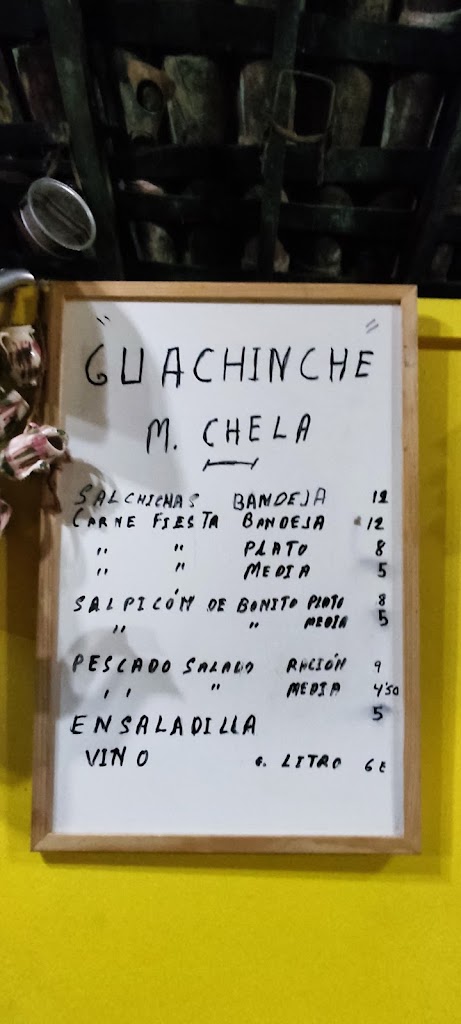 " GUACHINCHE "
M. CHELA
SALCHICHAS BANDEJA 12
CARNE FIESTA BANDEJA 12
" " PLATO 8
" " MEDIA 5
SALPICÓN DE BONITO PLATO 8
" " MEDIA 5
PESCADO SALADO RACIÓN 9
" " MEDIA 4'50
ENSALADILLA 5
VINO LITRO 6 E